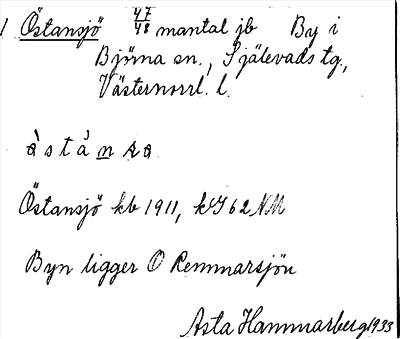 1 Östansjö 47/48 mantal jb By i
Björna sn., Själevads tg.,
Västernorrl. l.
Östansjö kb 1911, kgI 62 NM
Byn ligger O Remmarsjön
Asta Hammarberg 1933